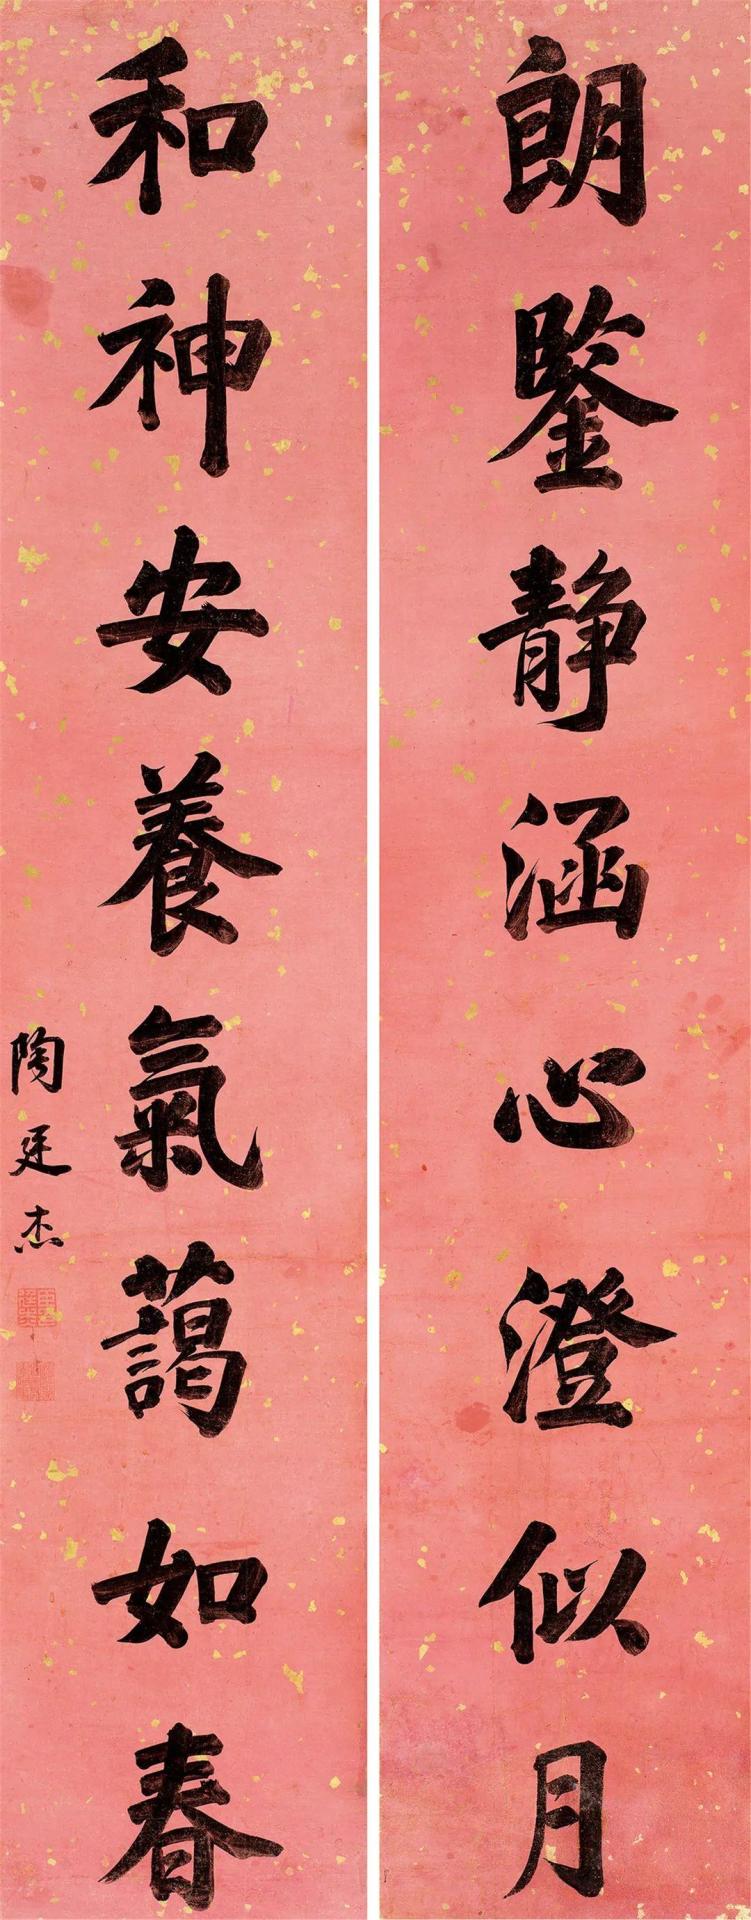 朗鑒靜涵心澄似月
和神安養氣藹如春
陶廷杰